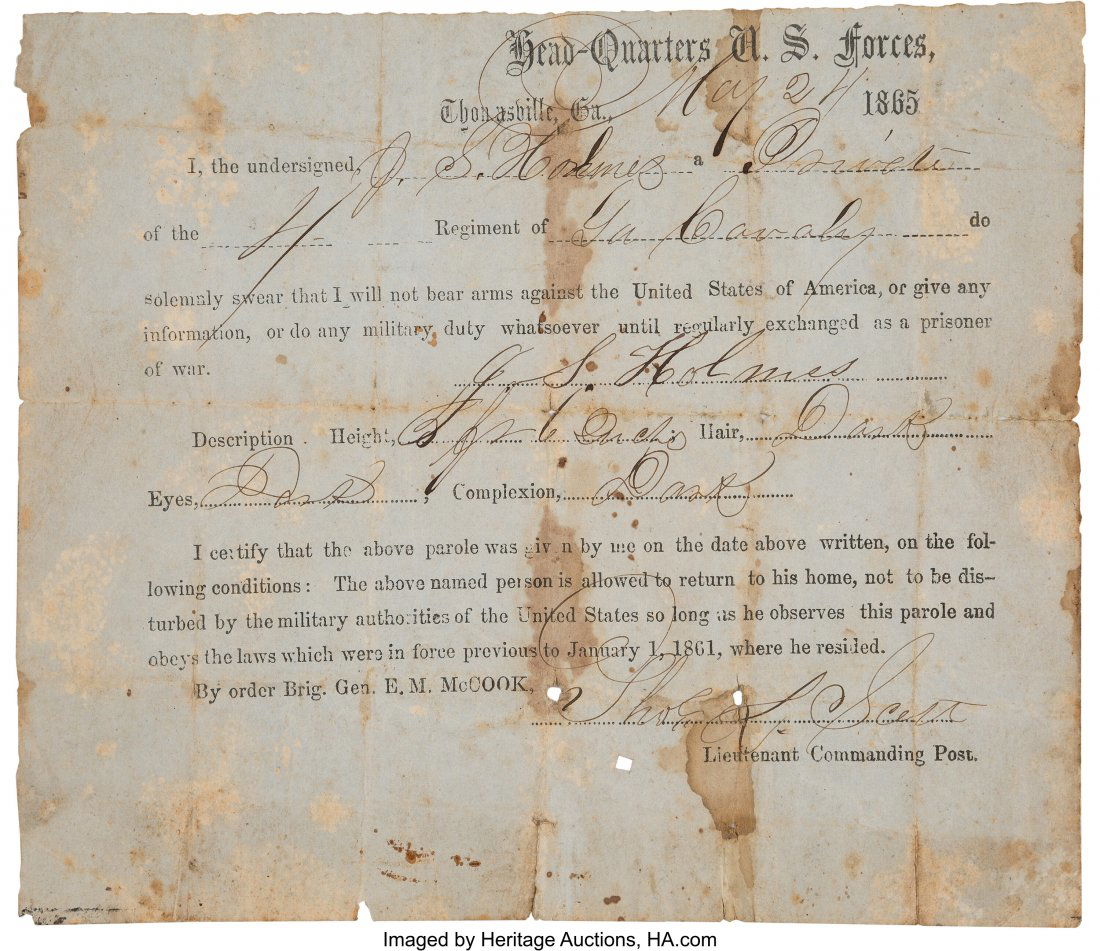 Head-Quarters U. S. Forces,
Thomasville, Ga., May 24 1865
I, the undersigned, J. S. Holmes a Private
of the 4 Regiment of Ga Cavalry do
solemnly swear that I will not bear arms against the United States of America, or give any
information, or do any military duty whatsoever until regularly exchanged as a prisoner
of war. J S. Holmes
Description . Height, 5 ft 6 Inch; Hair, Dark
Eyes, Dark ; Complexion, Dark
I certify that the above parole was given by me on the date above written, on the fol-
lowing conditions: The above named person is allowed to return to his home, not to be dis-
turbed by the military authorities of the United States so long as he observes this parole and
obeys the laws which were in force previous to January 1, 1861, where he resided.
By order Brig. Gen. E. M. McCOOK,
Scott
Lieutenant Commanding Post.
Imaged by Heritage Auctions, HA.com